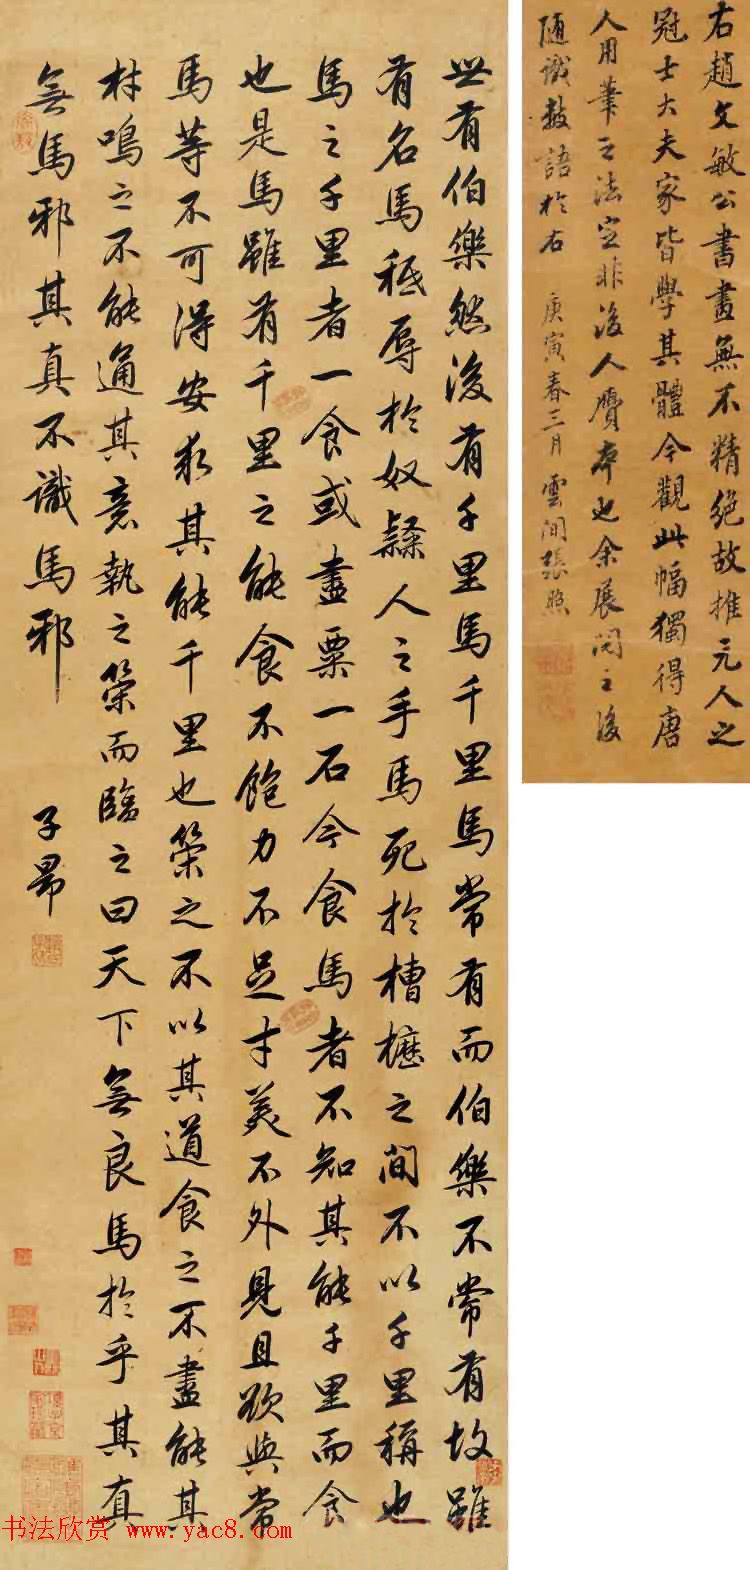 世有伯樂然後有千里馬千里馬常有而伯樂不常有故雖
有名馬秪辱於奴隸人之手馬死於槽櫪之間不以千里稱也
馬之千里者一食或盡粟一石今食馬者不知其能千里而食
也是馬雖有千里之能食不飽力不足才美不外見且欲與常
馬等不可得安求其能千里也策之不以其道食之不盡能其
材鳴之不能通其意執之策而臨之曰天下無良馬於乎其真
無馬邪其真不識馬邪
子昂
右趙文敏公書畫無不精絕故推元人之
冠士大夫家皆學其體今觀此幅獨得唐
人用筆之法定非後人贋本也余展閱之後
隨識數語於右 庚寅春三月雲間張照
书法欣赏 www.yac8.com